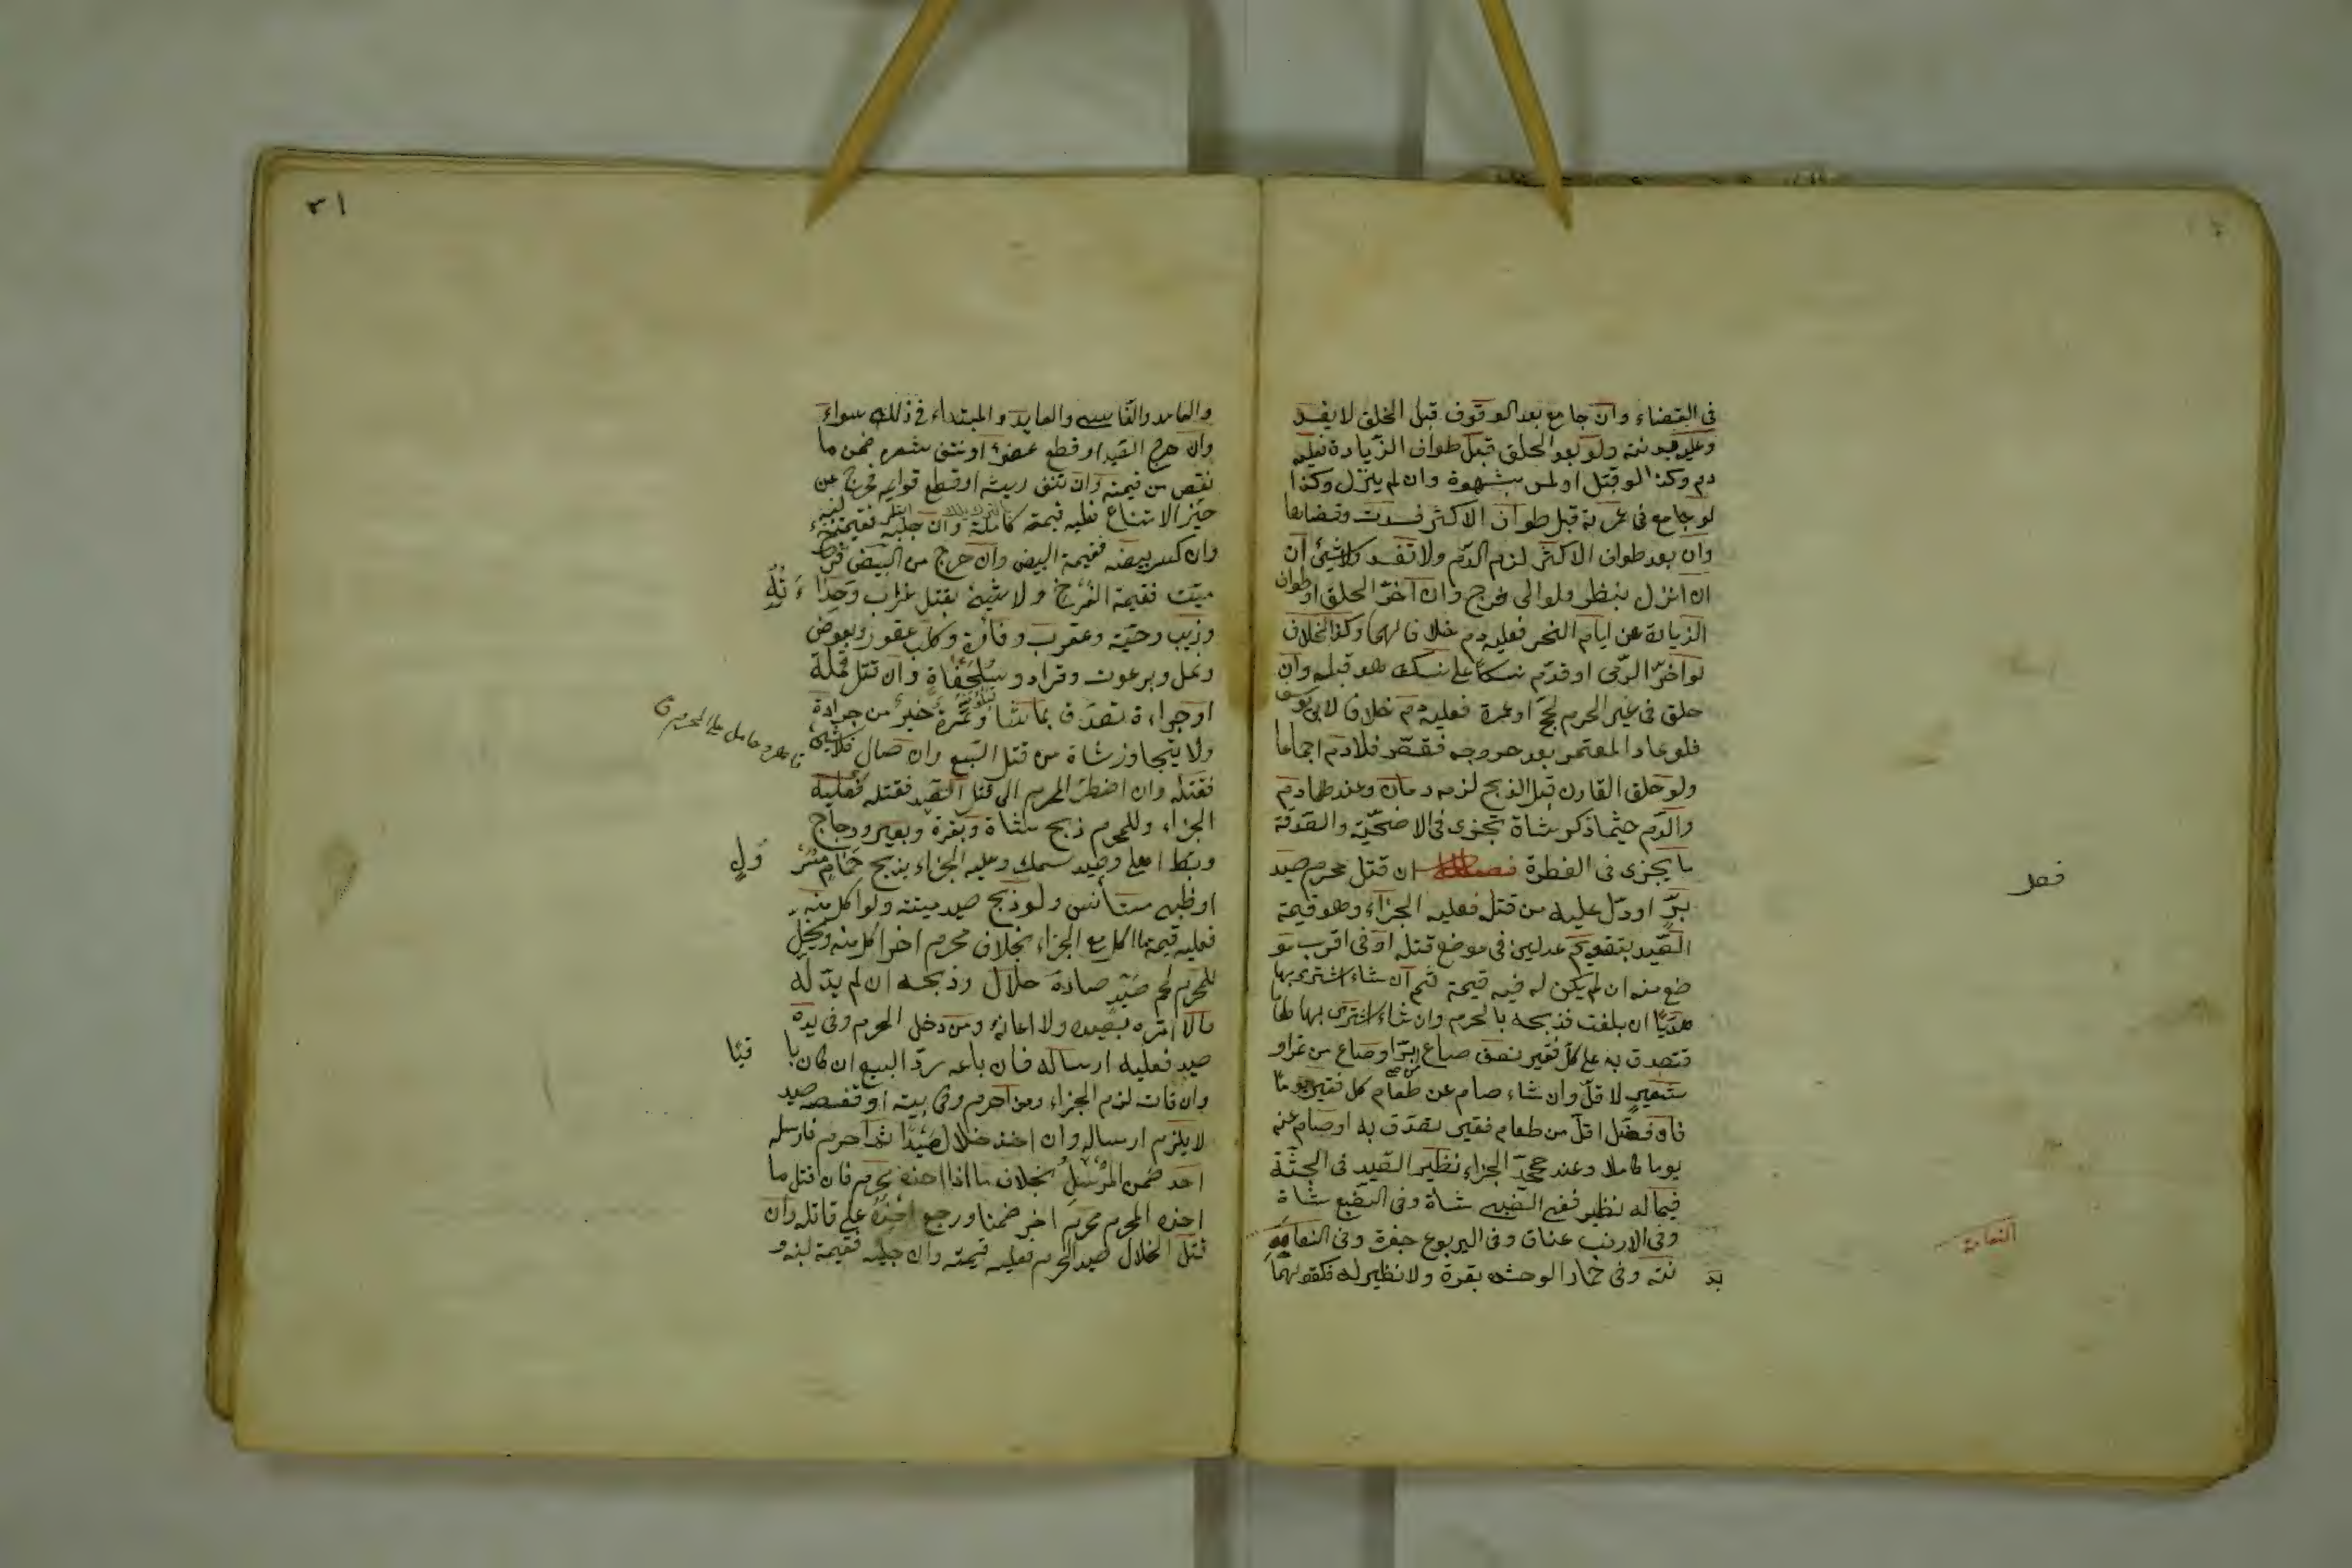 فى القضاء وان جامع بعد الوقوف قبل الحلق لا يفسد
وعليه بدنته ولو بعد الحلق قبل طواف الزيادة فعليه
دم وكذا لو قبّل او لمس بشهوة وان لم ينزل وكذا
لو جامع فى عمرته قبل طواف الاكثر فسدت وقضاها
وان بعد طواف الاكثر لزم الدّم ولا تفسد ولا شيئ ان
ان انزل بنظر ولو الى فرج وان اخّر الحلق او طواف
الزيارة عن ايام النحر فعليه دم خلافا لهما وكذا الخلاف
لو اخّر الرّمى او قدّم نسكا على نسك هو قبله وان
حلق فى غير الحرم لحجّ او عمرة فعليه دم خلافا لابى يوسف
فلو عاد المعتمر بعد خروجه فقصّر فلا دم اجماعا
ولو حلق القارن قبل الذبح لزمه دمان وعندهما دم
والدّم حيثما ذكر شاة تجزى فى الاضحيّة والصّدقة
ما يجزى فى الفطرة فصل ان قتل محرم صيد
برّ او دلّ عليه من قتله فعليه الجزاء وهو قيمة
الصّيد بتقويم عدلين فى موضع قتله او فى اقرب مو
ضع منه ان لم يكن له فيه قيمة ثم ان شاء اشترى بها
هديًا ان بلغت فذبحه بالحرم وان شاء اشترى بها طعاما
فتصدق به على كلّ فقير نصف صاع برّ او صاع من تمر او
شعير لا اقلّ وان شاء صام عن طعام كل فقير يومًا
فان فضل اقلّ من طعام فقير تصدّق به او صام عنه
يوما كاملا وعند محمّد الجزاء نظير الصّيد فى الجثّة
فيما له نظير ففى الضبى شاة وفى الضّبع شاة
وفى الارنب عناق وفى اليربوع جفرة وفى النعامة
بد نته وفى حمار الوحش بقرة ولا نظير له فكقولهما
فصل
النعامة
٣١
والعامد والنّاسى والعايد والمبتداء فى ذلك سواء
وان جرح الصّيد او قطع عضوه او نتف شعره ضمن ما
نقص من قيمته وان نتف ريشه او قطع قوايمه فخرج عن
حيّز الامتناع فعليه قيمته كاملة وان حلبه فقيمة لبنه
وان كسر بيضه فقيمة البيض وان خرج من البيض فرخ
ميّت فقيمة الفرخ ولا شيئ بقتل غراب وحداءة
وذيب وحيّة وعقرب وفأرة وكلب عقور وبعوض
ونمل وبرغوث وقراد وسلحفاة وان قتل قملة
او جراءدة تصدّق بما شا وتمرة خير من جرادة
ولا يتجاوز شاة من قتل السّبع وان صال فلا شيئ
فقتله وان اضطرّ المحرم الى قتل الصّيد فقتله فعليه
الجزاء وللمحرم ذبح شاة وبقرة وبعير ودجاج
وبطّ اهلى وصيد سمك وعليه الجزاء بذبح حمام مسرول
او ظبى مستأنس ولو ذبح صيد ميتته ولو اكل منه
فعليه قيمة ما اكل مع الجزاء بخلاف محرم اخر اكل منه ويحلّ
للمحرم لحم صيد صاده حلال وذبحه ان لم يدّ له
ما لا امره بصيده ولا اعانه ومن دخل الحرم وفى يده
صيد فعليه ارساله فان باعه ردّ البيع ان كان با قيًا
وان فات لزم الجزاء ومن احرم وفى بيته او قفصه صيد
لا يلزم ارساله وان اخذ حلال صيدًا ثم احرم فارسله
احد ضمن المرسل بخلاف ما اذا اخذه محرم فان قتل ما
اخذه المحرم محرم اخر ضمنا ورجع اخذه على قاتله وان
قتل الحلال صيد الحرم فعليه قيمته وان حلبه فقيمة لبنه و